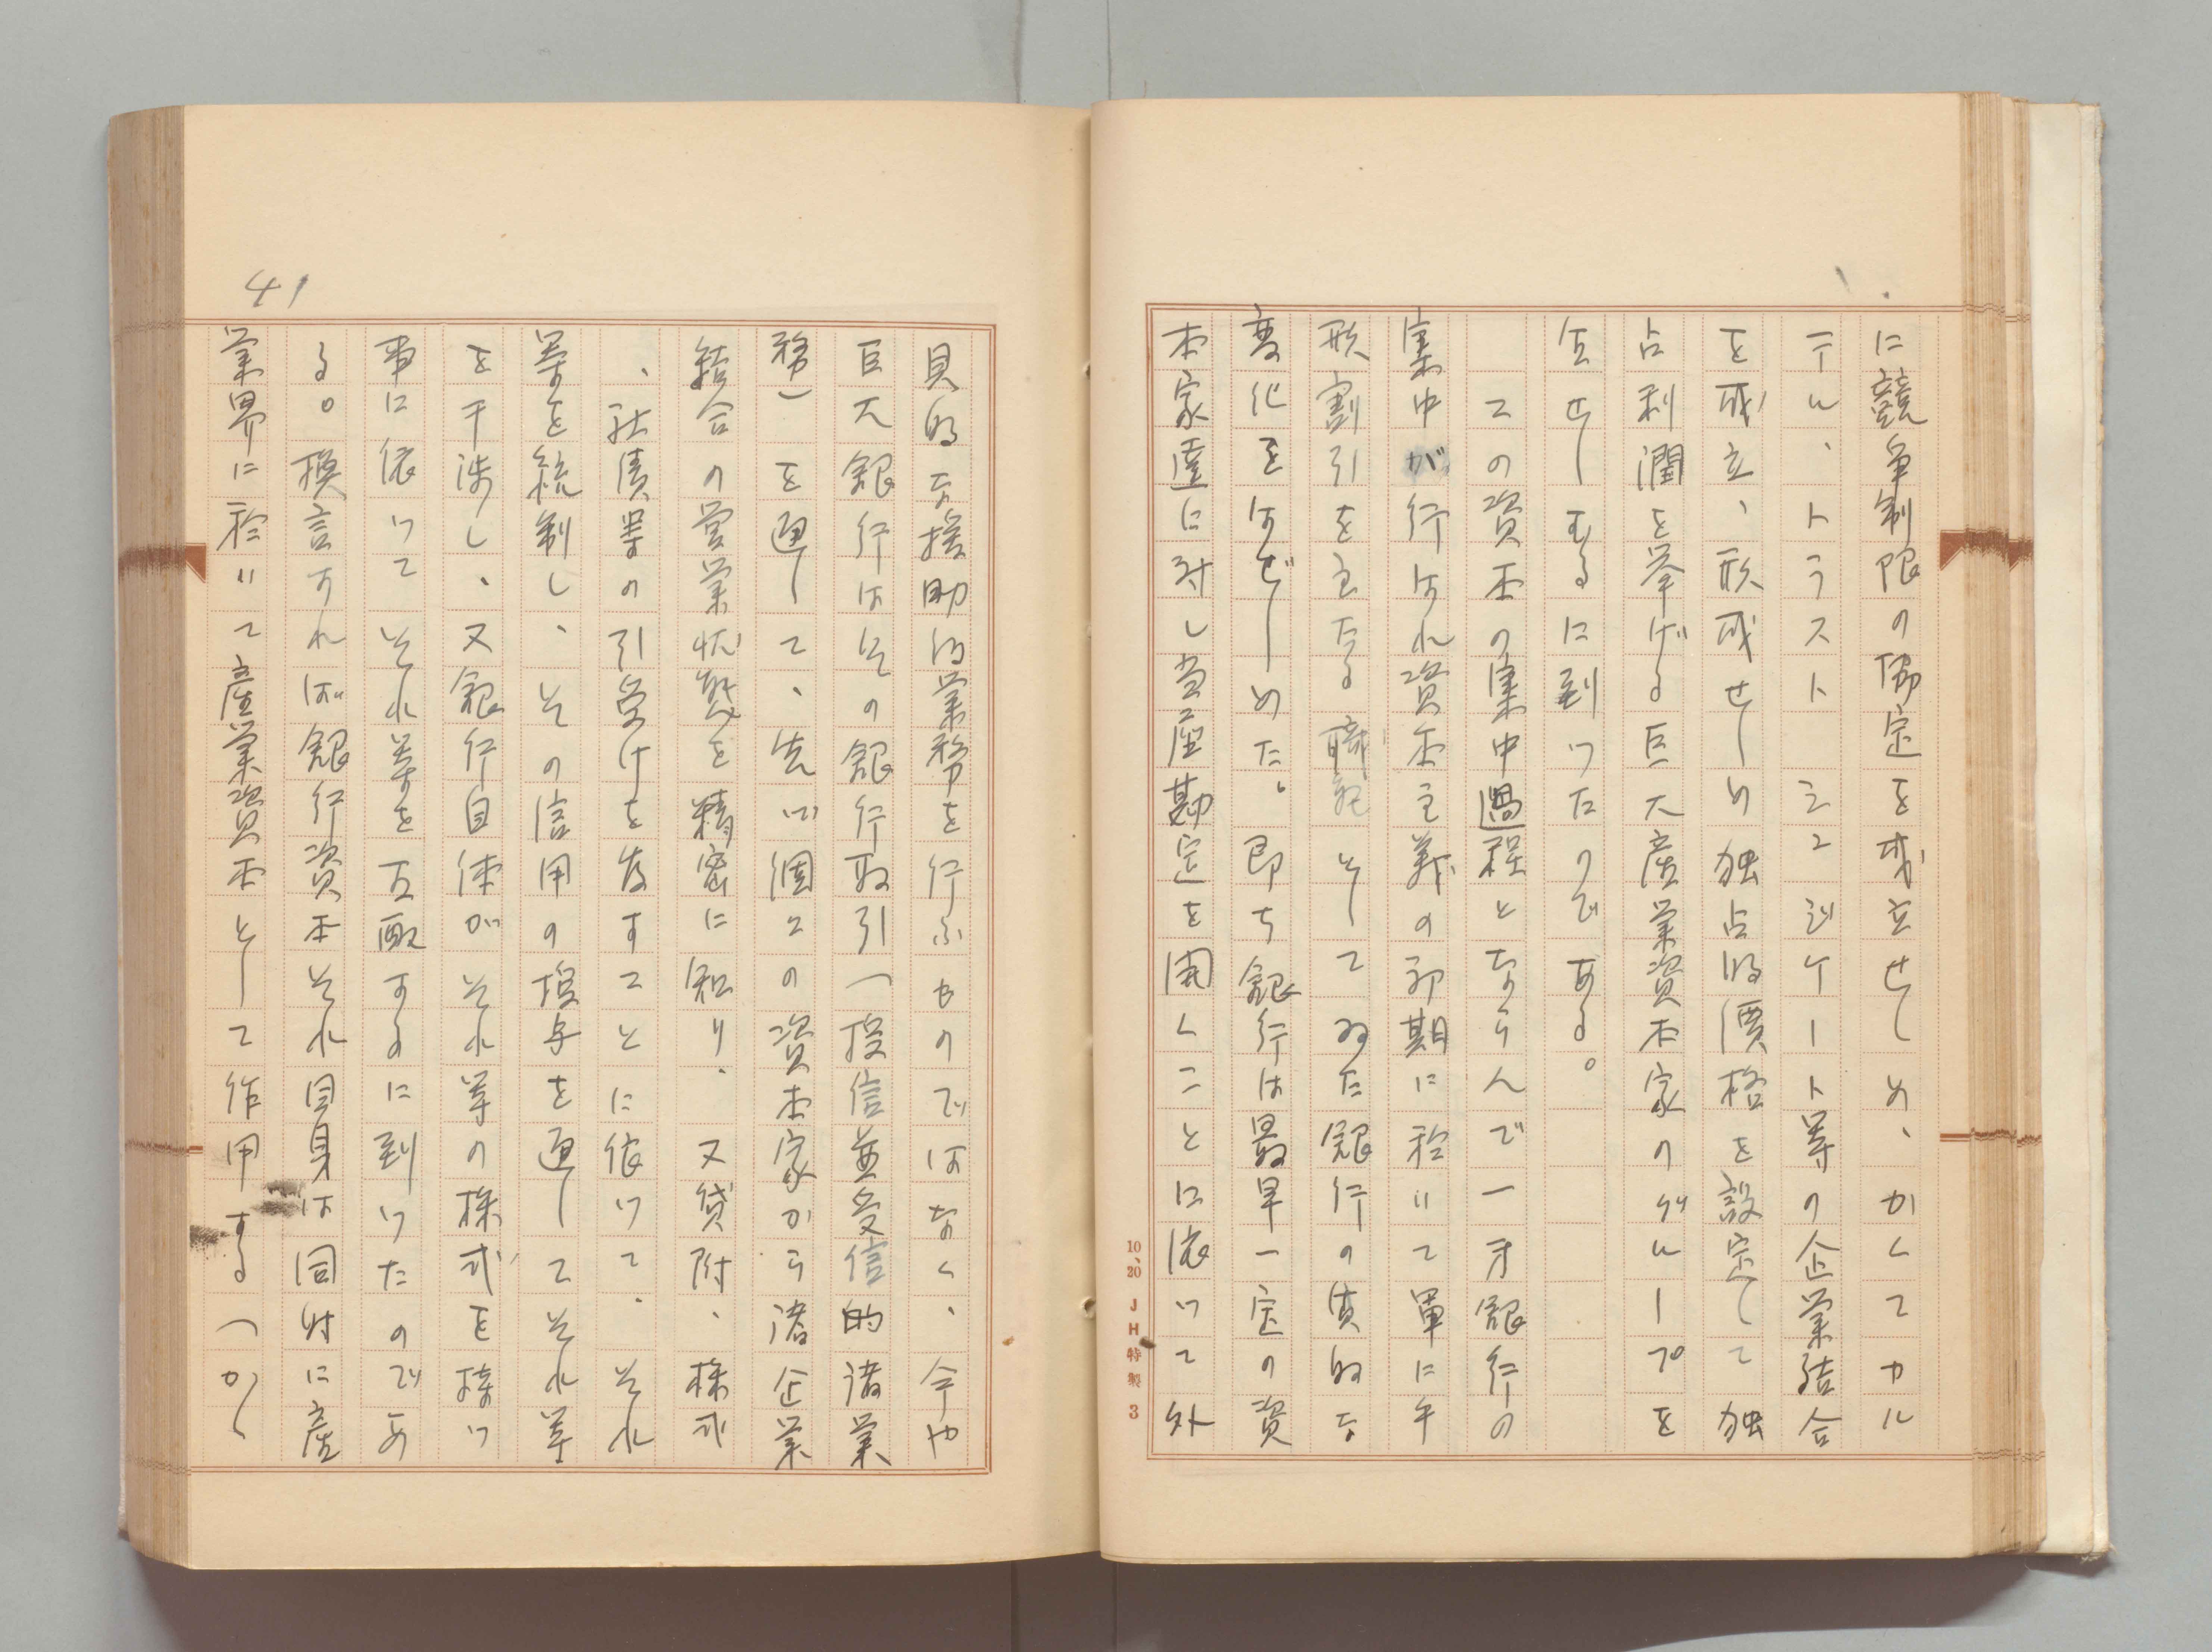 に競争制限の協定を成立せしめ、かくてカル
テル、トラスト シンヂケート等の企業結合
を成立、形成せしめ独占的價格を設定して独
占利潤を挙げる巨大産業資本家のグループを
生ぜしむるに到つたのである。
この資本の集中過程とならんで一方銀行の
集中が行はれ資本主義の初期に於いて單に手
形割引を主たる 商賣 としてゐた銀行の質的な
変化をなぜしめた。即ち銀行は最早一定の資
本家達に対し当座勘定を開くことに依つて外
10、20 JH特製 3
41
見的な援助的業務を行ふものではなく、今や
巨大銀行はその銀行取引(授信並受信的諸業
務)を通して、先づ個々の資本家から諸企業
結合の営業状態を精密に知り、又貸附、株式
、社債等の引受けを為すことに依つて、それ
等を統制し、その信用の授与を通してそれ等
を干渉し、又銀行自体がそれ等の株式を持つ
事に依つてそれ等を支配するに到つたのであ
る。換言すれば銀行資本それ自身は同時に産
業界に於いて産業資本として作用する(かく